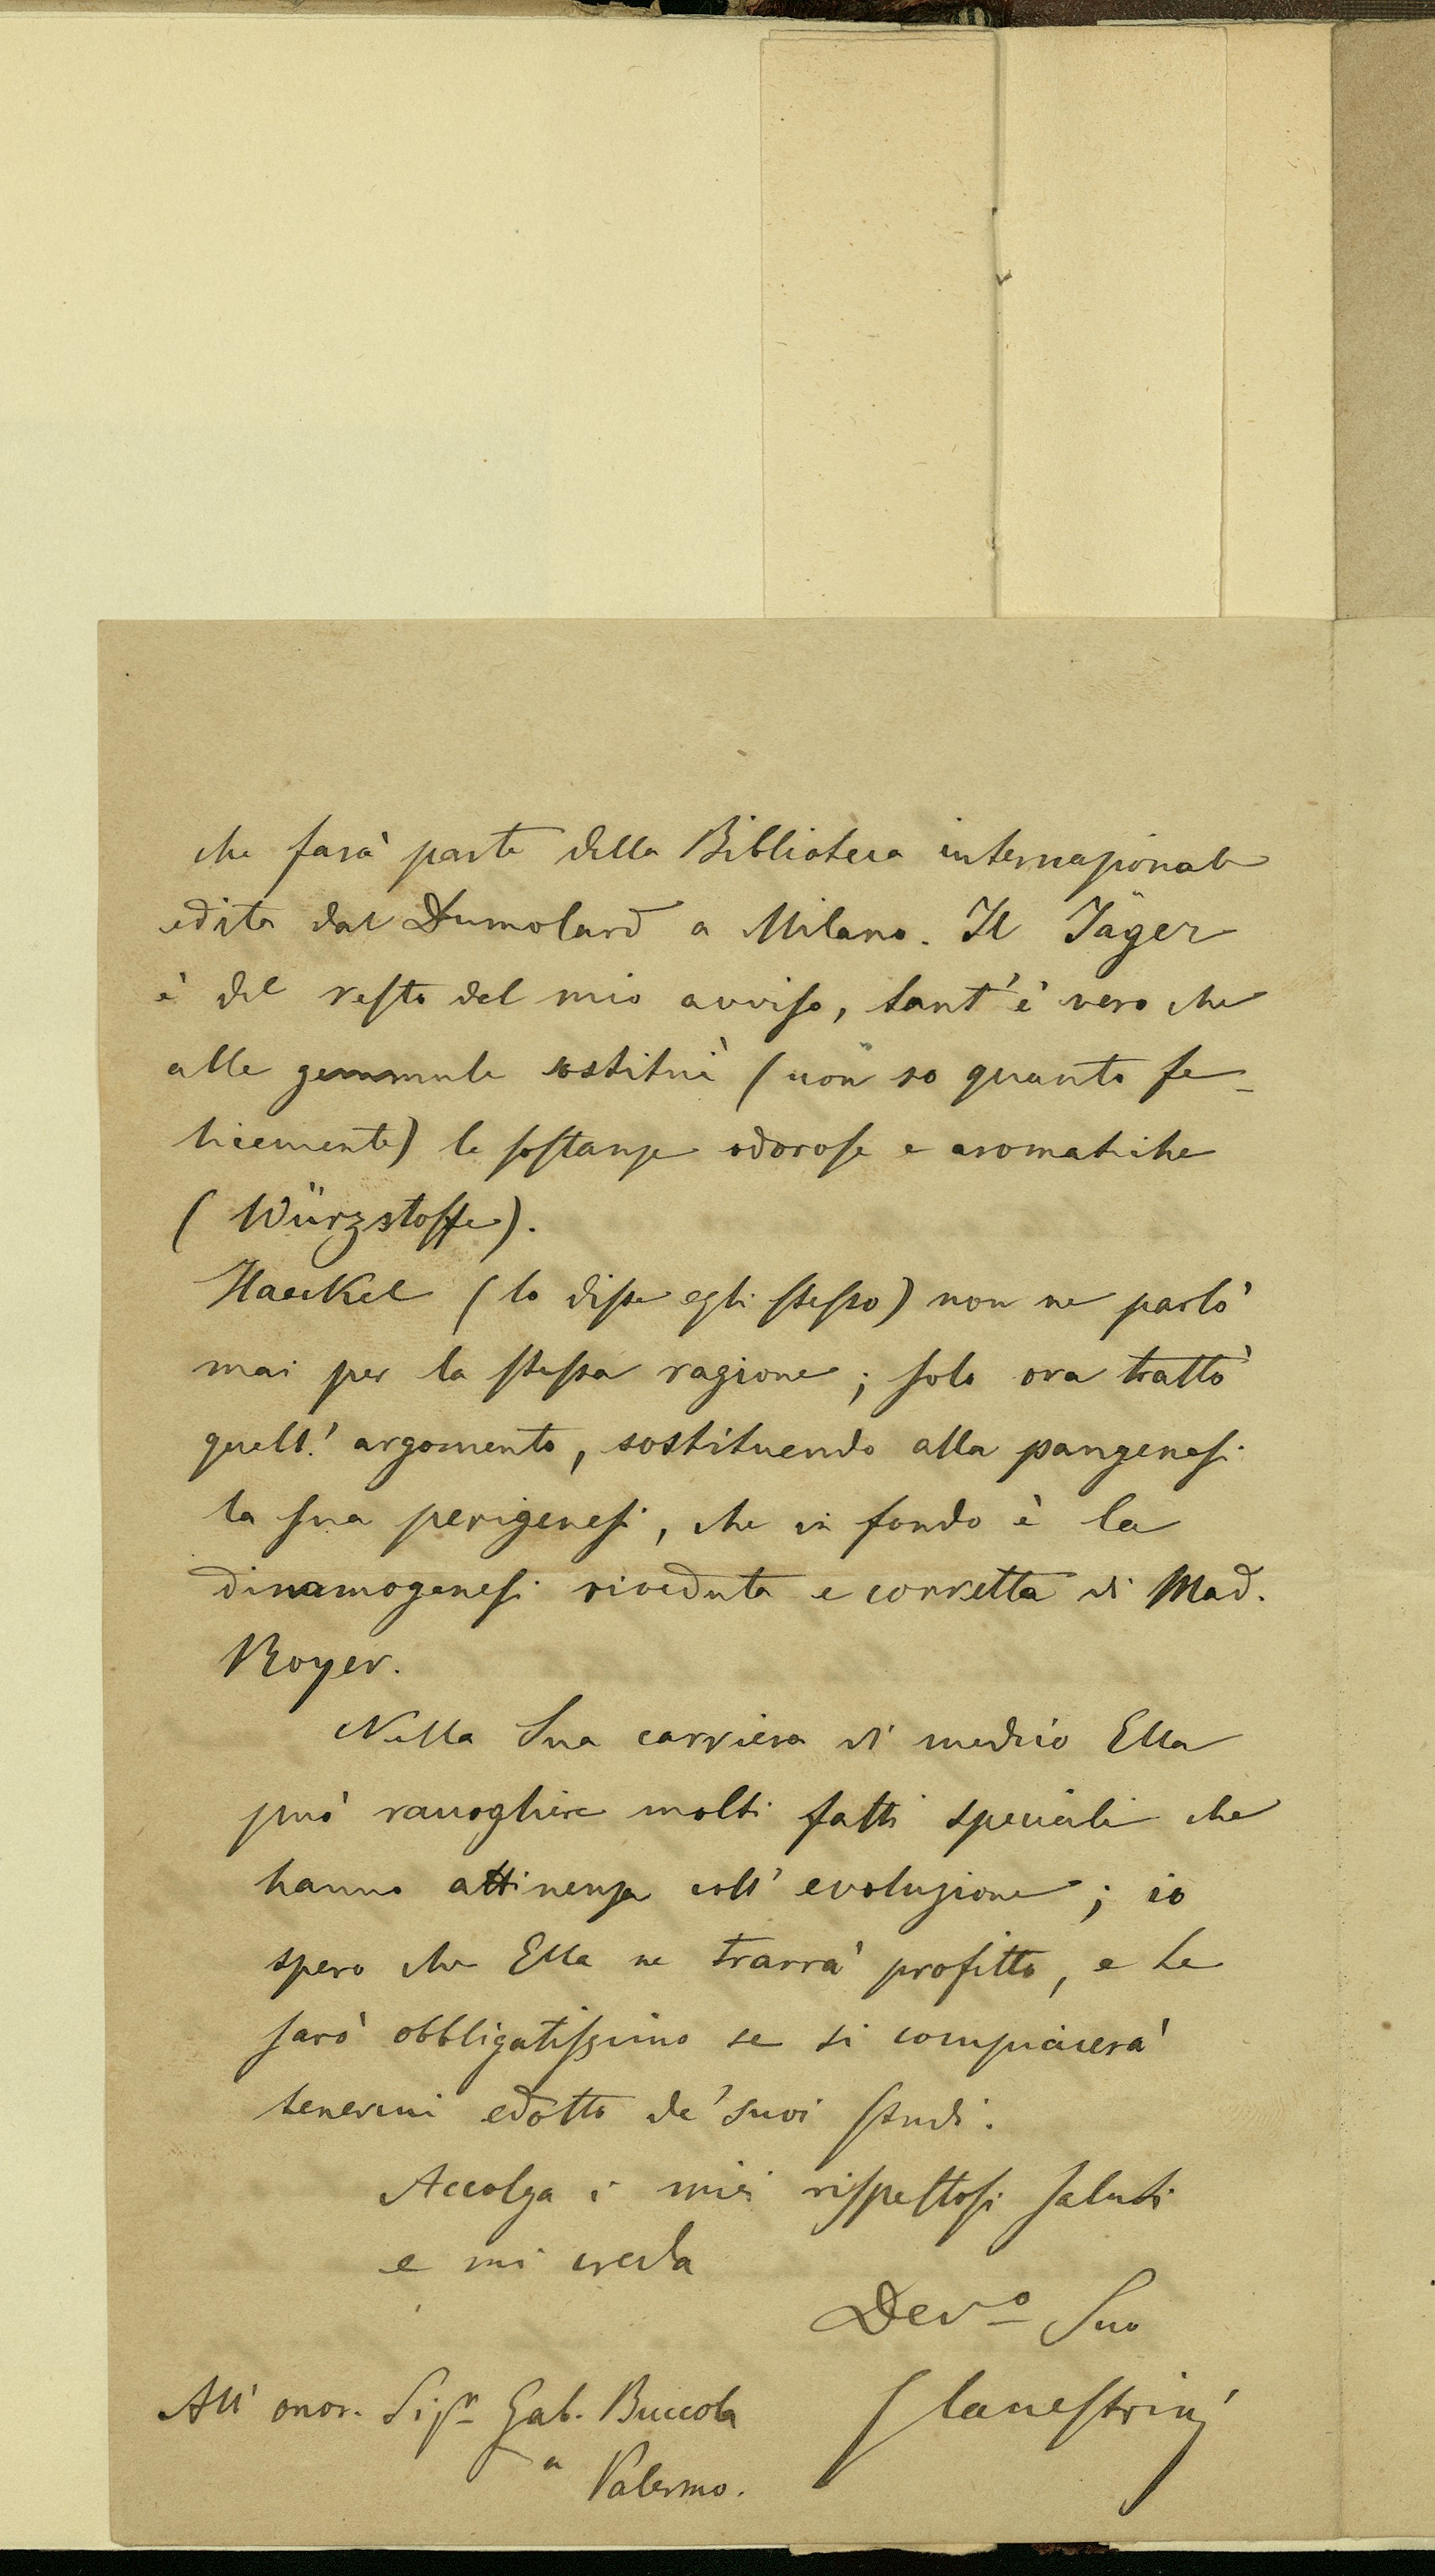 che farà parte della Biblioteca internazionale
edita dal Dumolard a Milano. Il Jäger
è del resto del mio avviso, tant'è vero che
alle gemmule sostituì (non so quanto fe-
licemente) le sostanze odorose e aromatiche
(Würzstoffe).
Haeckel (lo disse egli stesso) non ne parlò
mai per la stessa ragione; solo ora trattò
quell'argomento, sostituendo alla pangenesi
la sua perigenesi, che in fondo è la
dinamogenesi riveduta e corretta di Mad.
Royer.
Nella Sua carriera di medico Ella
può raccogliere molti fatti speciali che
hanno attinenza coll'evoluzione; io
spero che Ella ne trarrà profitto, e Le
sarò obbligatissimo se si compiacerà
tenermi edotto de' suoi studi.
Accolga i miei rispettosi saluti
e mi creda
Devº Suo
GCanestrini
All' onor. Sigr Gab. Buccola
a
Palermo.